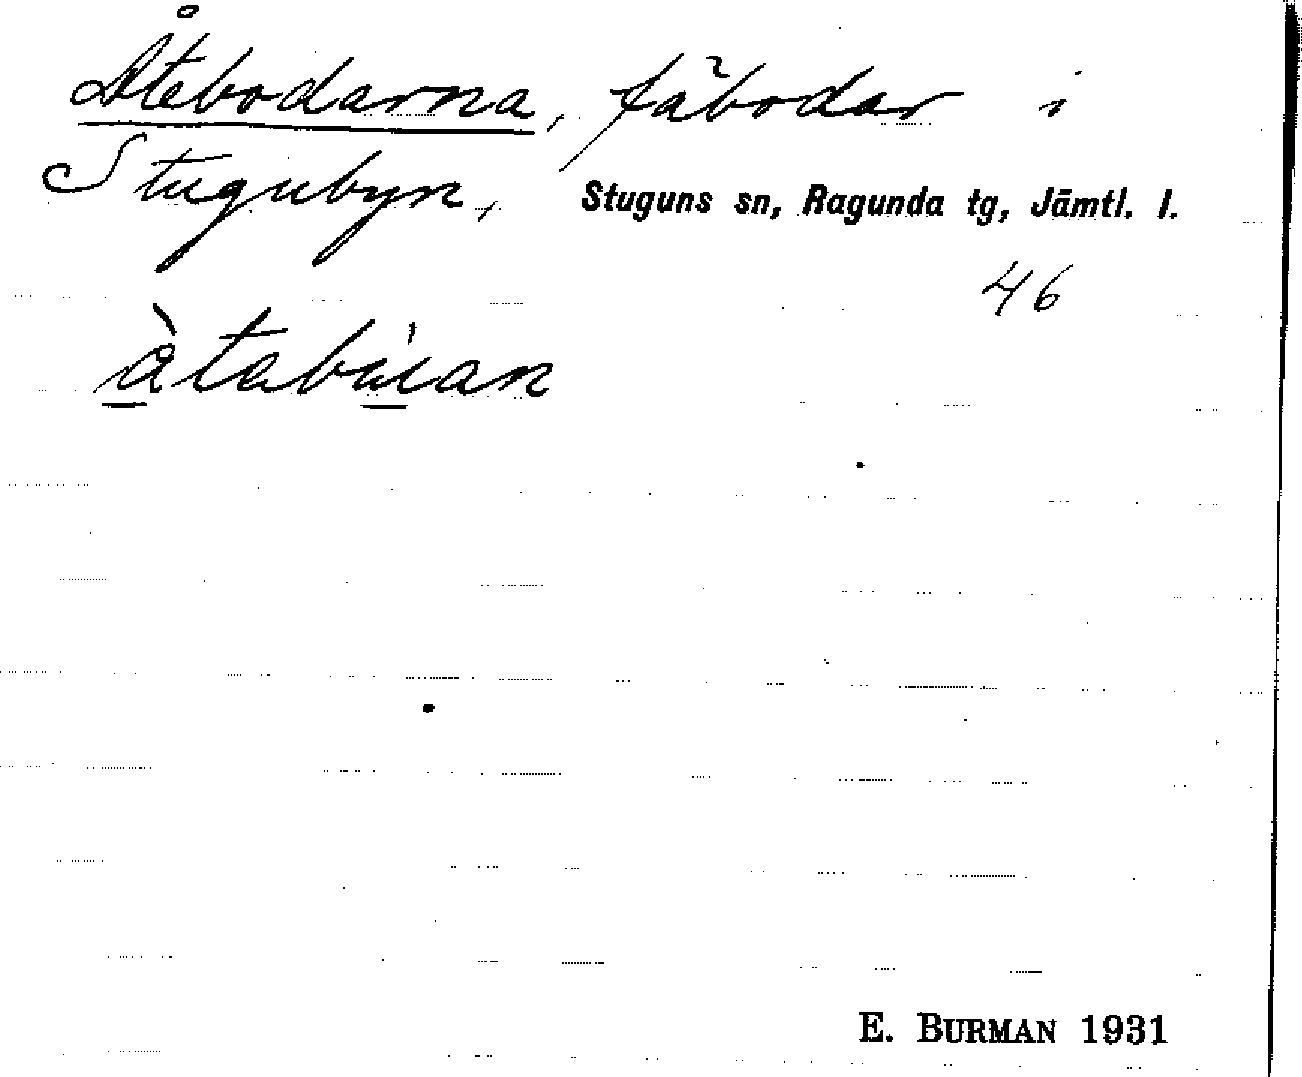 Åtebodarna, fäbodar i
Stugubyn, Stuguns sn, Ragunda tg, Jämtl. l.
46
E. BURMAN 1931